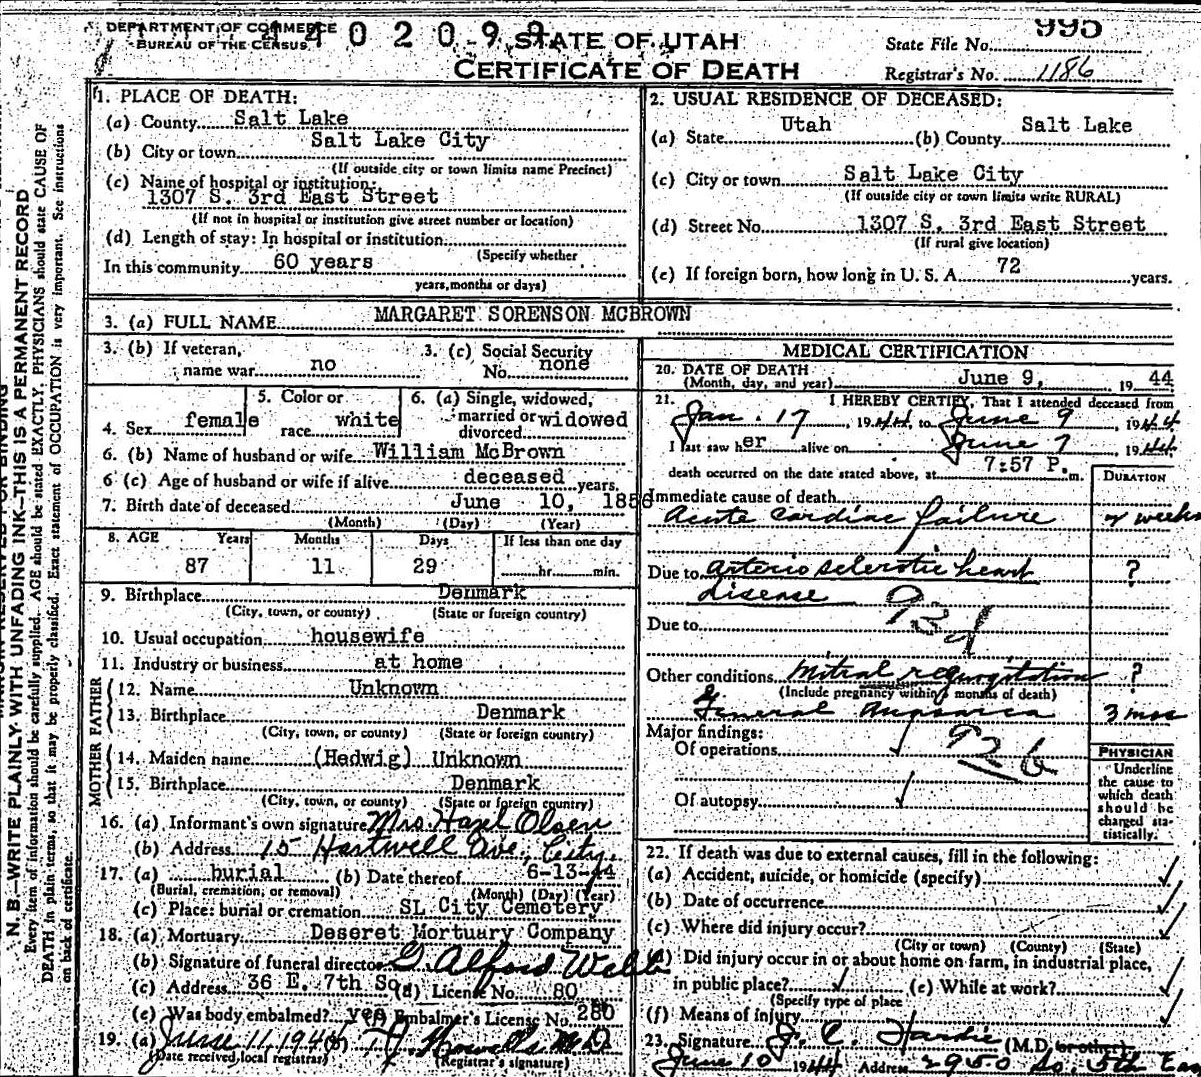 DEPARTMENT OF COMMERCE
BUREAU OF THE CENSUS
STATE OF UTAH
CERTIFICATE OF DEATH
State File No. 995
Registrar's No. 1186
1. PLACE OF DEATH:
(a) County Salt Lake
(b) City or town Salt Lake City
(If outside city or town limits name Precinct)
(c) Name of hospital or institution:
1307 S. 3rd East Street
(If not in hospital or institution give street number or location)
(d) Length of stay: In hospital or institution
(Specify whether
In this community 60 years
years, months or days)
2. USUAL RESIDENCE OF DECEASED:
(a) State Utah (b) County Salt Lake
(c) City or town Salt Lake City
(If outside city or town limits write RURAL)
(d) Street No. 1307 S. 3rd East Street
(If rural give location)
(e) If foreign born, how long in U. S. A. 72 years.
3. (a) FULL NAME MARGARET SORENSON MCBROWN
3. (b) If veteran,
name war no
3. (c) Social Security
No. none
4. Sex female
5. Color or
race white
6. (a) Single, widowed,
married or widowed
divorced
6. (b) Name of husband or wife William McBrown
6 (c) Age of husband or wife if alive deceased years.
7. Birth date of deceased June 10, 1856
(Month) (Day) (Year)
8. AGE Years Months Days If less than one day
87 11 29 hr. min.
9. Birthplace Denmark
(City, town, or county) (State or foreign country)
10. Usual occupation housewife
11. Industry or business at home
FATHER
12. Name Unknown
13. Birthplace Denmark
(City, town, or county) (State or foreign country)
MOTHER
14. Maiden name (Hedwig) Unknown
15. Birthplace Denmark
(City, town, or county) (State or foreign country)
16. (a) Informant's own signature Mrs. Hazel Olsen
(b) Address 15 Hartwell Ave., City.
17. (a) burial (b) Date thereof 6-13-44
(Burial, cremation, or removal) (Month) (Day) (Year)
(c) Place: burial or cremation SL City Cemetery
18. (a) Mortuary Deseret Mortuary Company
(b) Signature of funeral director G. Alford Webb
(c) Address 36 E. 7th So. (d) License No. 80
(e) Was body embalmed? yes Embalmer's License No. 280
19. (a) June 11, 1944
(Date received, local registrar) (Registrar's signature)
MEDICAL CERTIFICATION
20. DATE OF DEATH
(Month, day, and year) June 9, 19 44
21. I HEREBY CERTIFY, That I attended deceased from
Jan. 17, 1944, to June 9, 1944
I last saw her alive on June 7 1944
death occurred on the date stated above, at 7:57 P. m.
DURATION
Immediate cause of death
Acute cardiac failure weeks
Due to arterio sclerotic heart ?
disease
93d
Due to
Other conditions Mitral regurgitation ?
(Include pregnancy within 3 months of death)
General Anasarca 3 mos
92b
Major findings:
Of operations
Of autopsy
PHYSICIAN
Underline
the cause to
which death
should be
charged sta-
tistically.
22. If death was due to external causes, fill in the following:
(a) Accident, suicide, or homicide (specify)
(b) Date of occurrence
(c) Where did injury occur?
(City or town) (County) (State)
(d) Did injury occur in or about home on farm, in industrial place,
in public place? (e) While at work?
(Specify type of place
(f) Means of injury
23. Signature J. C. Hardie (M.D. or other)
June 10 1944 Address 2950 So. 5th Ea
N. B.—WRITE PLAINLY WITH UNFADING INK—THIS IS A PERMANENT RECORD
Every item of information should be carefully supplied. AGE should be stated EXACTLY. PHYSICIANS should state CAUSE OF
DEATH in plain terms, so that it may be properly classified. Exact statement of OCCUPATION is very important. See instructions
on back of certificate.